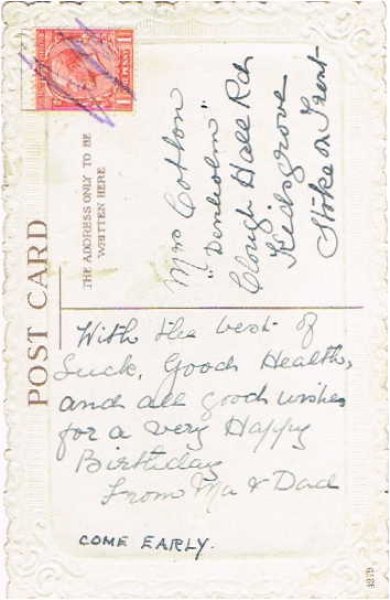 POST CARD
THE ADDRESS ONLY TO BE
WRITTEN HERE
Mrs Cotton
"Denholm"
Clough Hall Rd
Kidsgrove
Stoke on Trent
With the best of
Luck, Good Health,
and all good wishes
for a very Happy
Birthday
From Ma & Dad
COME EARLY.